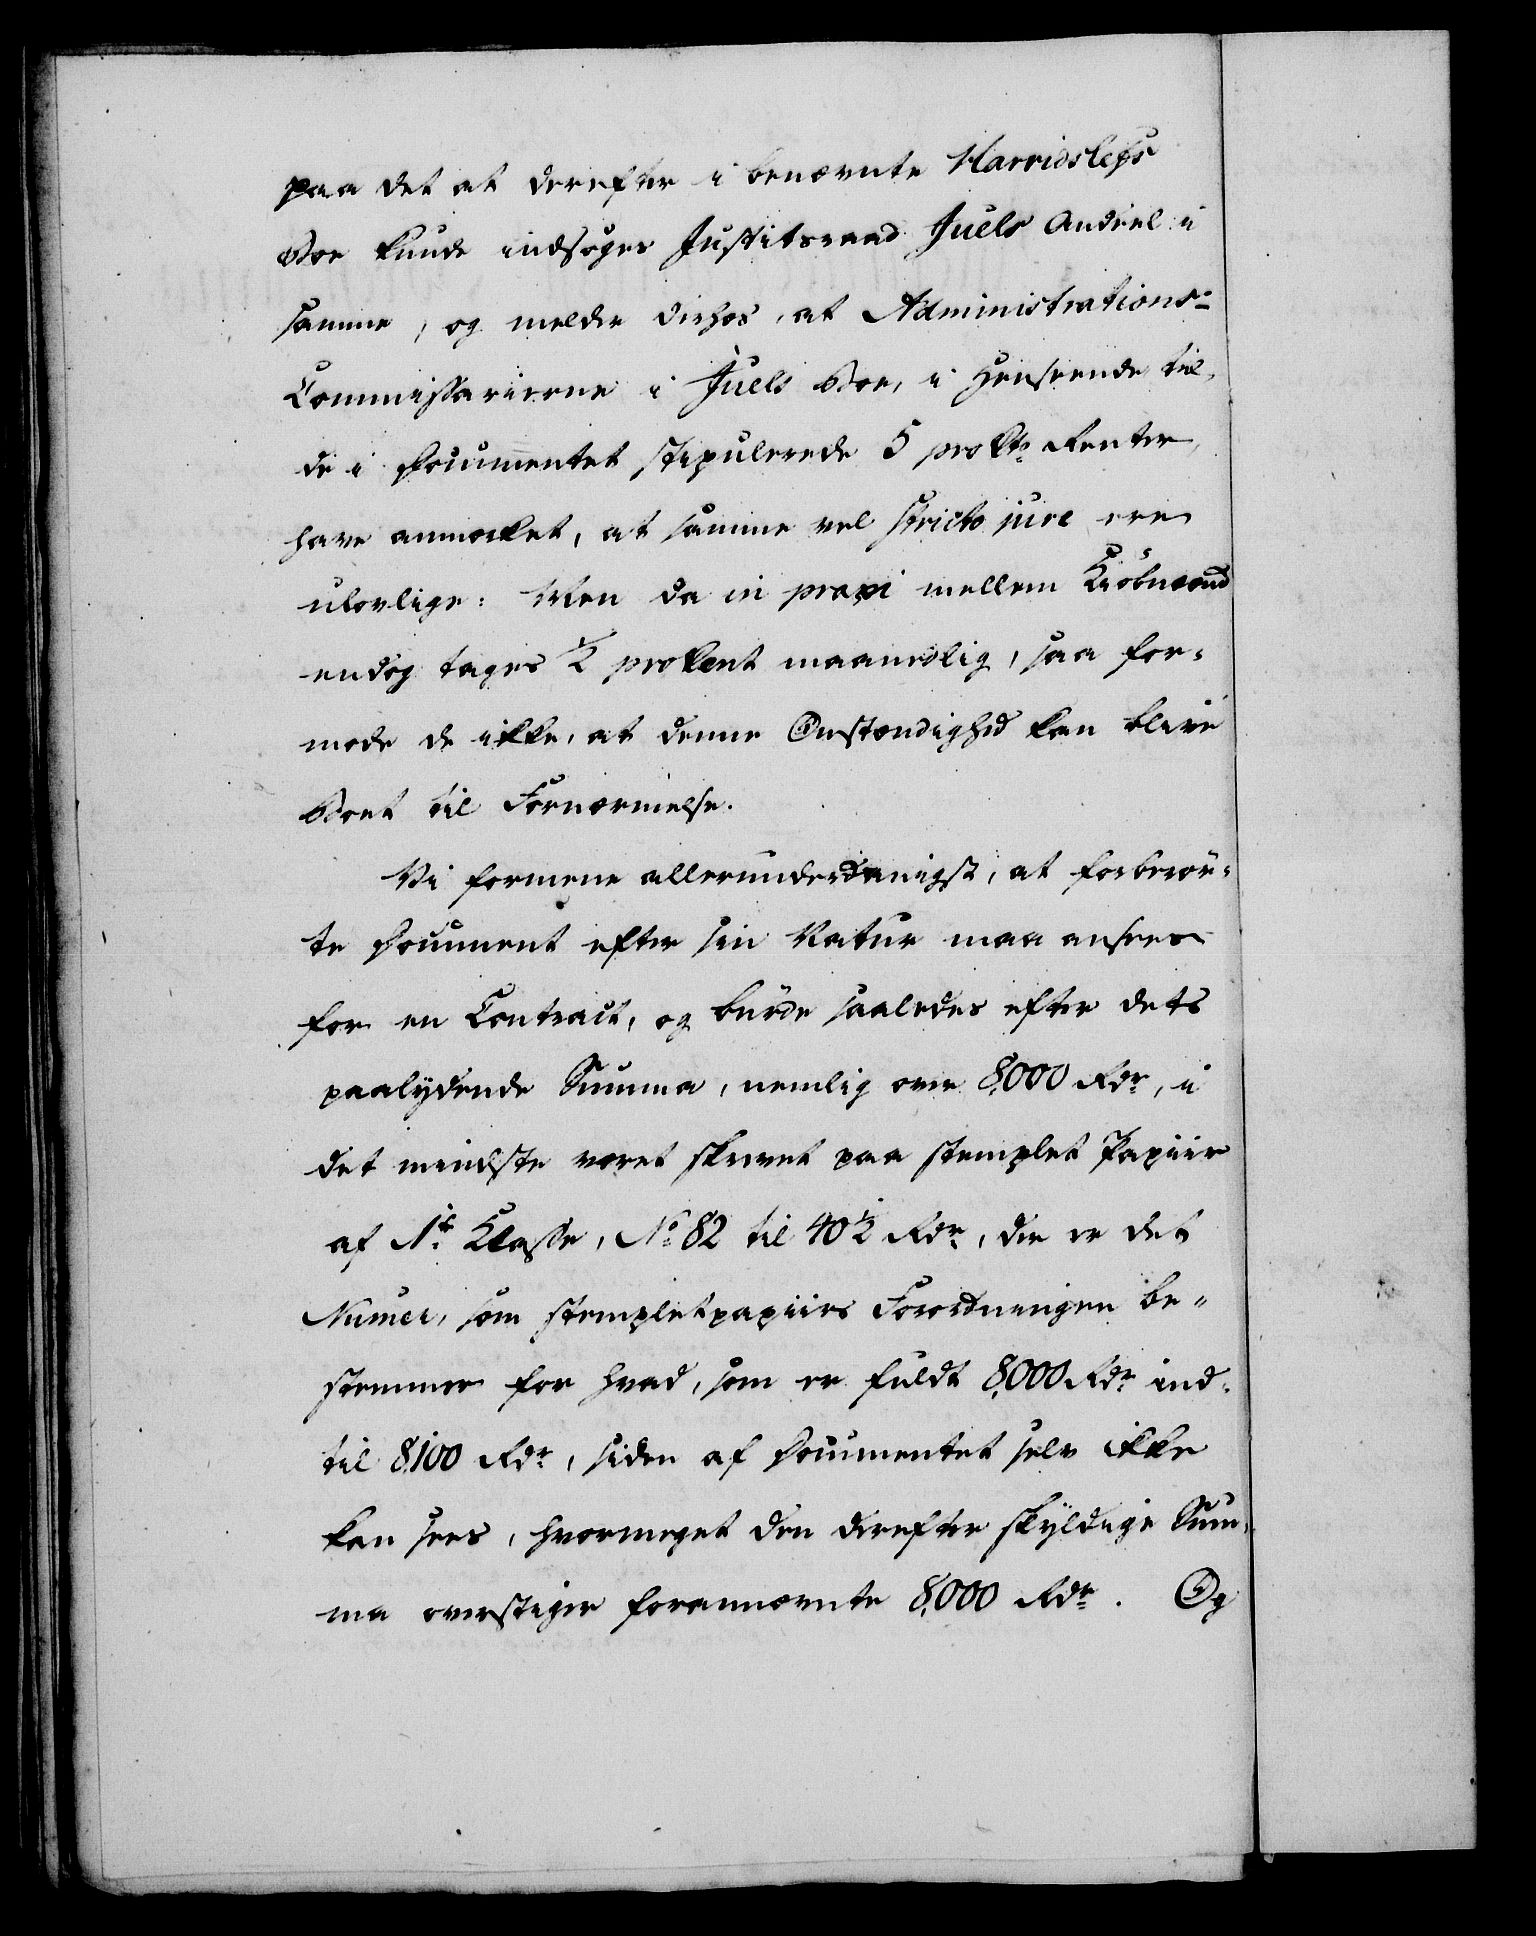 paa det at derefter i benævnte Harridslefs
Boe kunde indsøges Justitsraad Juels Andeel i
samme, og melder derhos, at Administrations-
Commissarierne i Juels Boe, i Henseende til
de i Documentet stipulerede 5 proCto Renter,
have anmærket, at samme vel stricto jure ere
ulovlige: Men da in praxi mellem Kiöbmænd
endog tages ½ proCent maanedlig, saa for-
mode de ikke, at denne Omstændighed kan blive
Boet til Fornærmelse.
Vi formene allerunderdanigst, at forberör-
te Document efter sin Natur maa ansees
for en Contract, og burde saaledes efter dets
paalydende Summa, nemlig over 8,000 Rdr, i
det mindste været skrevet paa stemplet Papiir
af 1te Classe, No 82 til 40½ Rdr, der er det
Numer, som stempletpapiirs Forordningen be-
stemmer for hvad, som er fuldt 8,000 Rdr ind-
til 8,100 Rdr, siden af Documentet selv ikke
kan sees, hvormeget den derefter skyldige Sum-
ma overstiger forannævnte 8,000 Rdr. Og